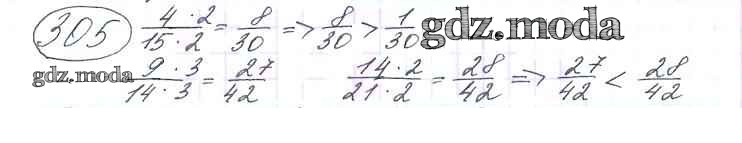 305 4·2/15·2 = 8/30 => 8/30 > 1/30 gdz.moda
gdz.moda 9·3/14·3 = 27/42 14·2/21·2 = 28/42 => 27/42 < 28/42